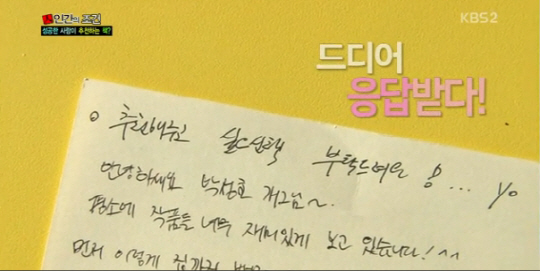 인간의 조건
성공한 사람이 추천하는 책?
KBS2
드디어
응답받다!
부탁드려요
안녕하세요 박성호 개그맨님~
평소에 작품들 너무 재미있게 보고 있습니다! ^^
먼저 이렇게